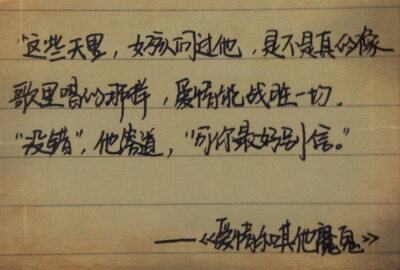 "这些天里，女孩问过他，是不是真的像
歌里唱的那样，爱情能战胜一切。
"没错"，他答道，"可你最好别信。"
——《爱情和其他魔鬼》